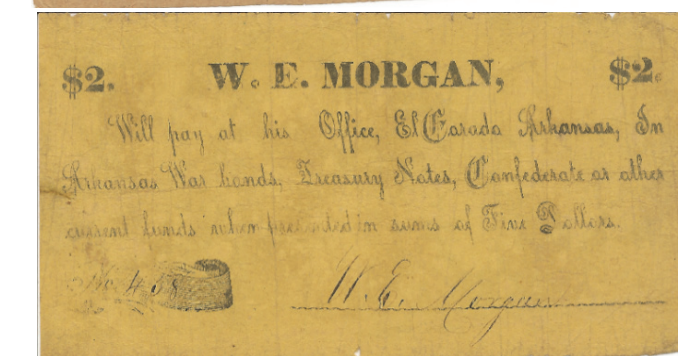 $2. W. E. MORGAN, $2.
Will pay at his Office, El Dorado Arkansas, In
Arkansas War bonds, Treasury Notes, Confederate or other
current funds when presented in sums of Five Dollars.
No 458 W. E. Morgan